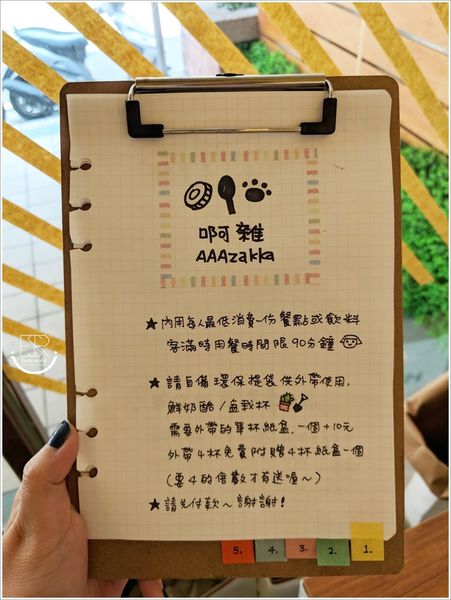 啊雜
AAAzakka
★內用每人最低消費一份餐點或飲料
客滿時用餐時間限90分鐘
★請自備環保提袋供外帶使用,
鮮奶酪/盆栽杯
需要外帶的單杯紙盒,一個+10元
外帶4杯免費附贈4杯紙盒一個
(要4的倍數才有送喔~)
★請先付款~謝謝!
5. 4. 3. 2. 1.